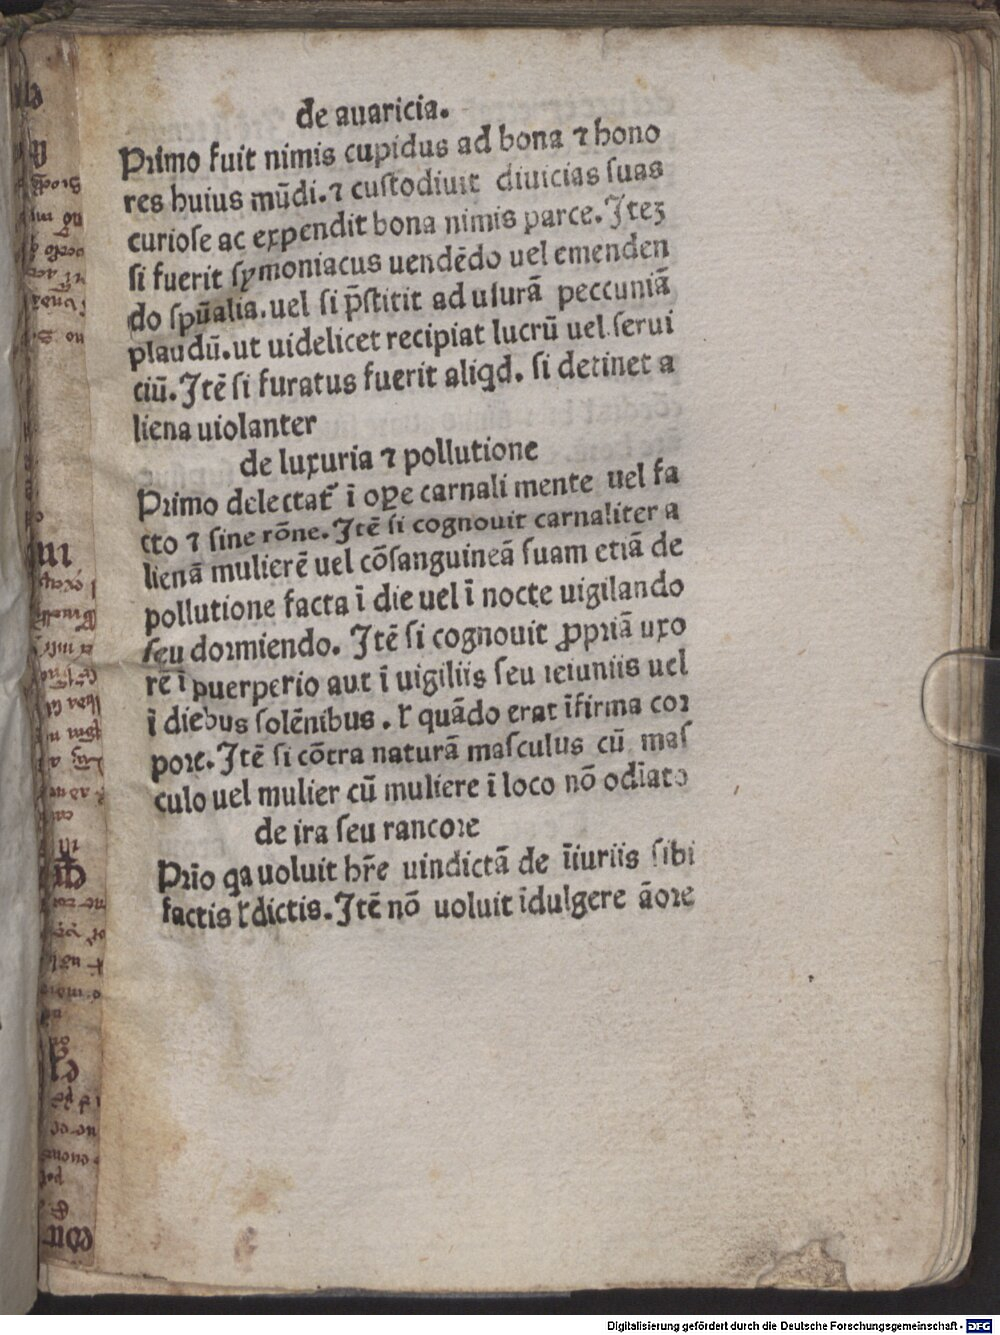 de auaricia.
Primo fuit nimis cupidus ad bona ⁊ hono
res huius mūdi. ⁊ custodiuit diuicias suas
curiose ac expendit bona nimis parce. Iteꝫ
si fuerit symoniacus uendēdo uel emenden
do spūalia. uel si p̄stitit ad usurā peccuniā
plaudū. ut uidelicet recipiat lucrū uel serui
ciū. Itē si furatus fuerit aliqd. si detinet a
liena uiolanter
de luxuria ⁊ pollutione
Primo delectat᷑ ī oꝑe carnali mente uel fa
cto ⁊ sine rōne. Itē si cognouit carnaliter a
lienā mulierē uel cōsanguineā suam etiā de
pollutione facta ī die uel ī nocte uigilando
seu dormiendo. Itē si cognouit ꝓpriā uxo
rē ī puerperio aut ī uigiliis seu ieiuniis uel
ī diebus solēnibus. ł quādo erat īfirma cor
pore. Itē si cōtra naturā masculus cū mas
culo uel mulier cū muliere ī loco nō odīato
de ira seu rancore
Prīo qa uoluit hr̄e uindictā de īiuriis sibi
factis ł dictis. Itē nō uoluit īdulgere āore
Digitalisierung gefördert durch die Deutsche Forschungsgemeinschaft - DFG